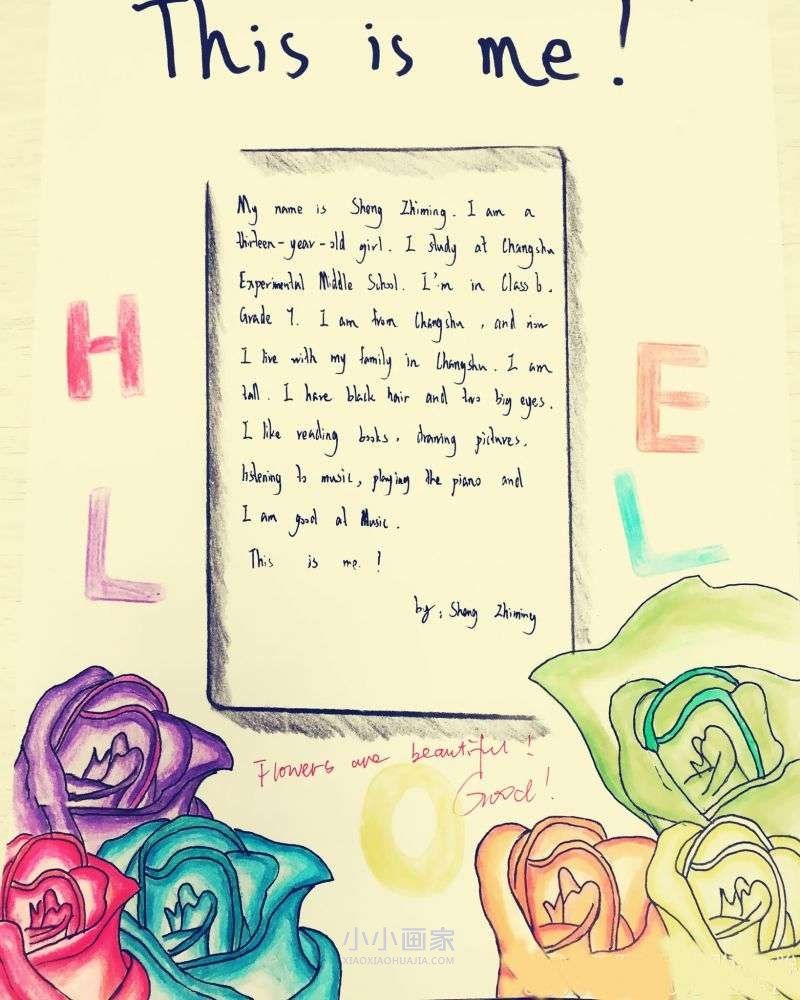 This is me!
My name is Sheng Zhiming. I am a
thirteen-year-old girl. I study at Changshu
Experimental Middle School. I'm in Class 6,
Grade 7. I am from Changshu, and now
I live with my family in Changshu. I am
tall. I have black hair and two big eyes.
I like reading books, drawing pictures,
listening to music, playing the piano and
I am good at Music.
This is me!
by: Sheng Zhiming
H
E
L
L
O
Flowers are beautiful!
Good!
小小画家
XIAOXIAOHUAJIA.COM